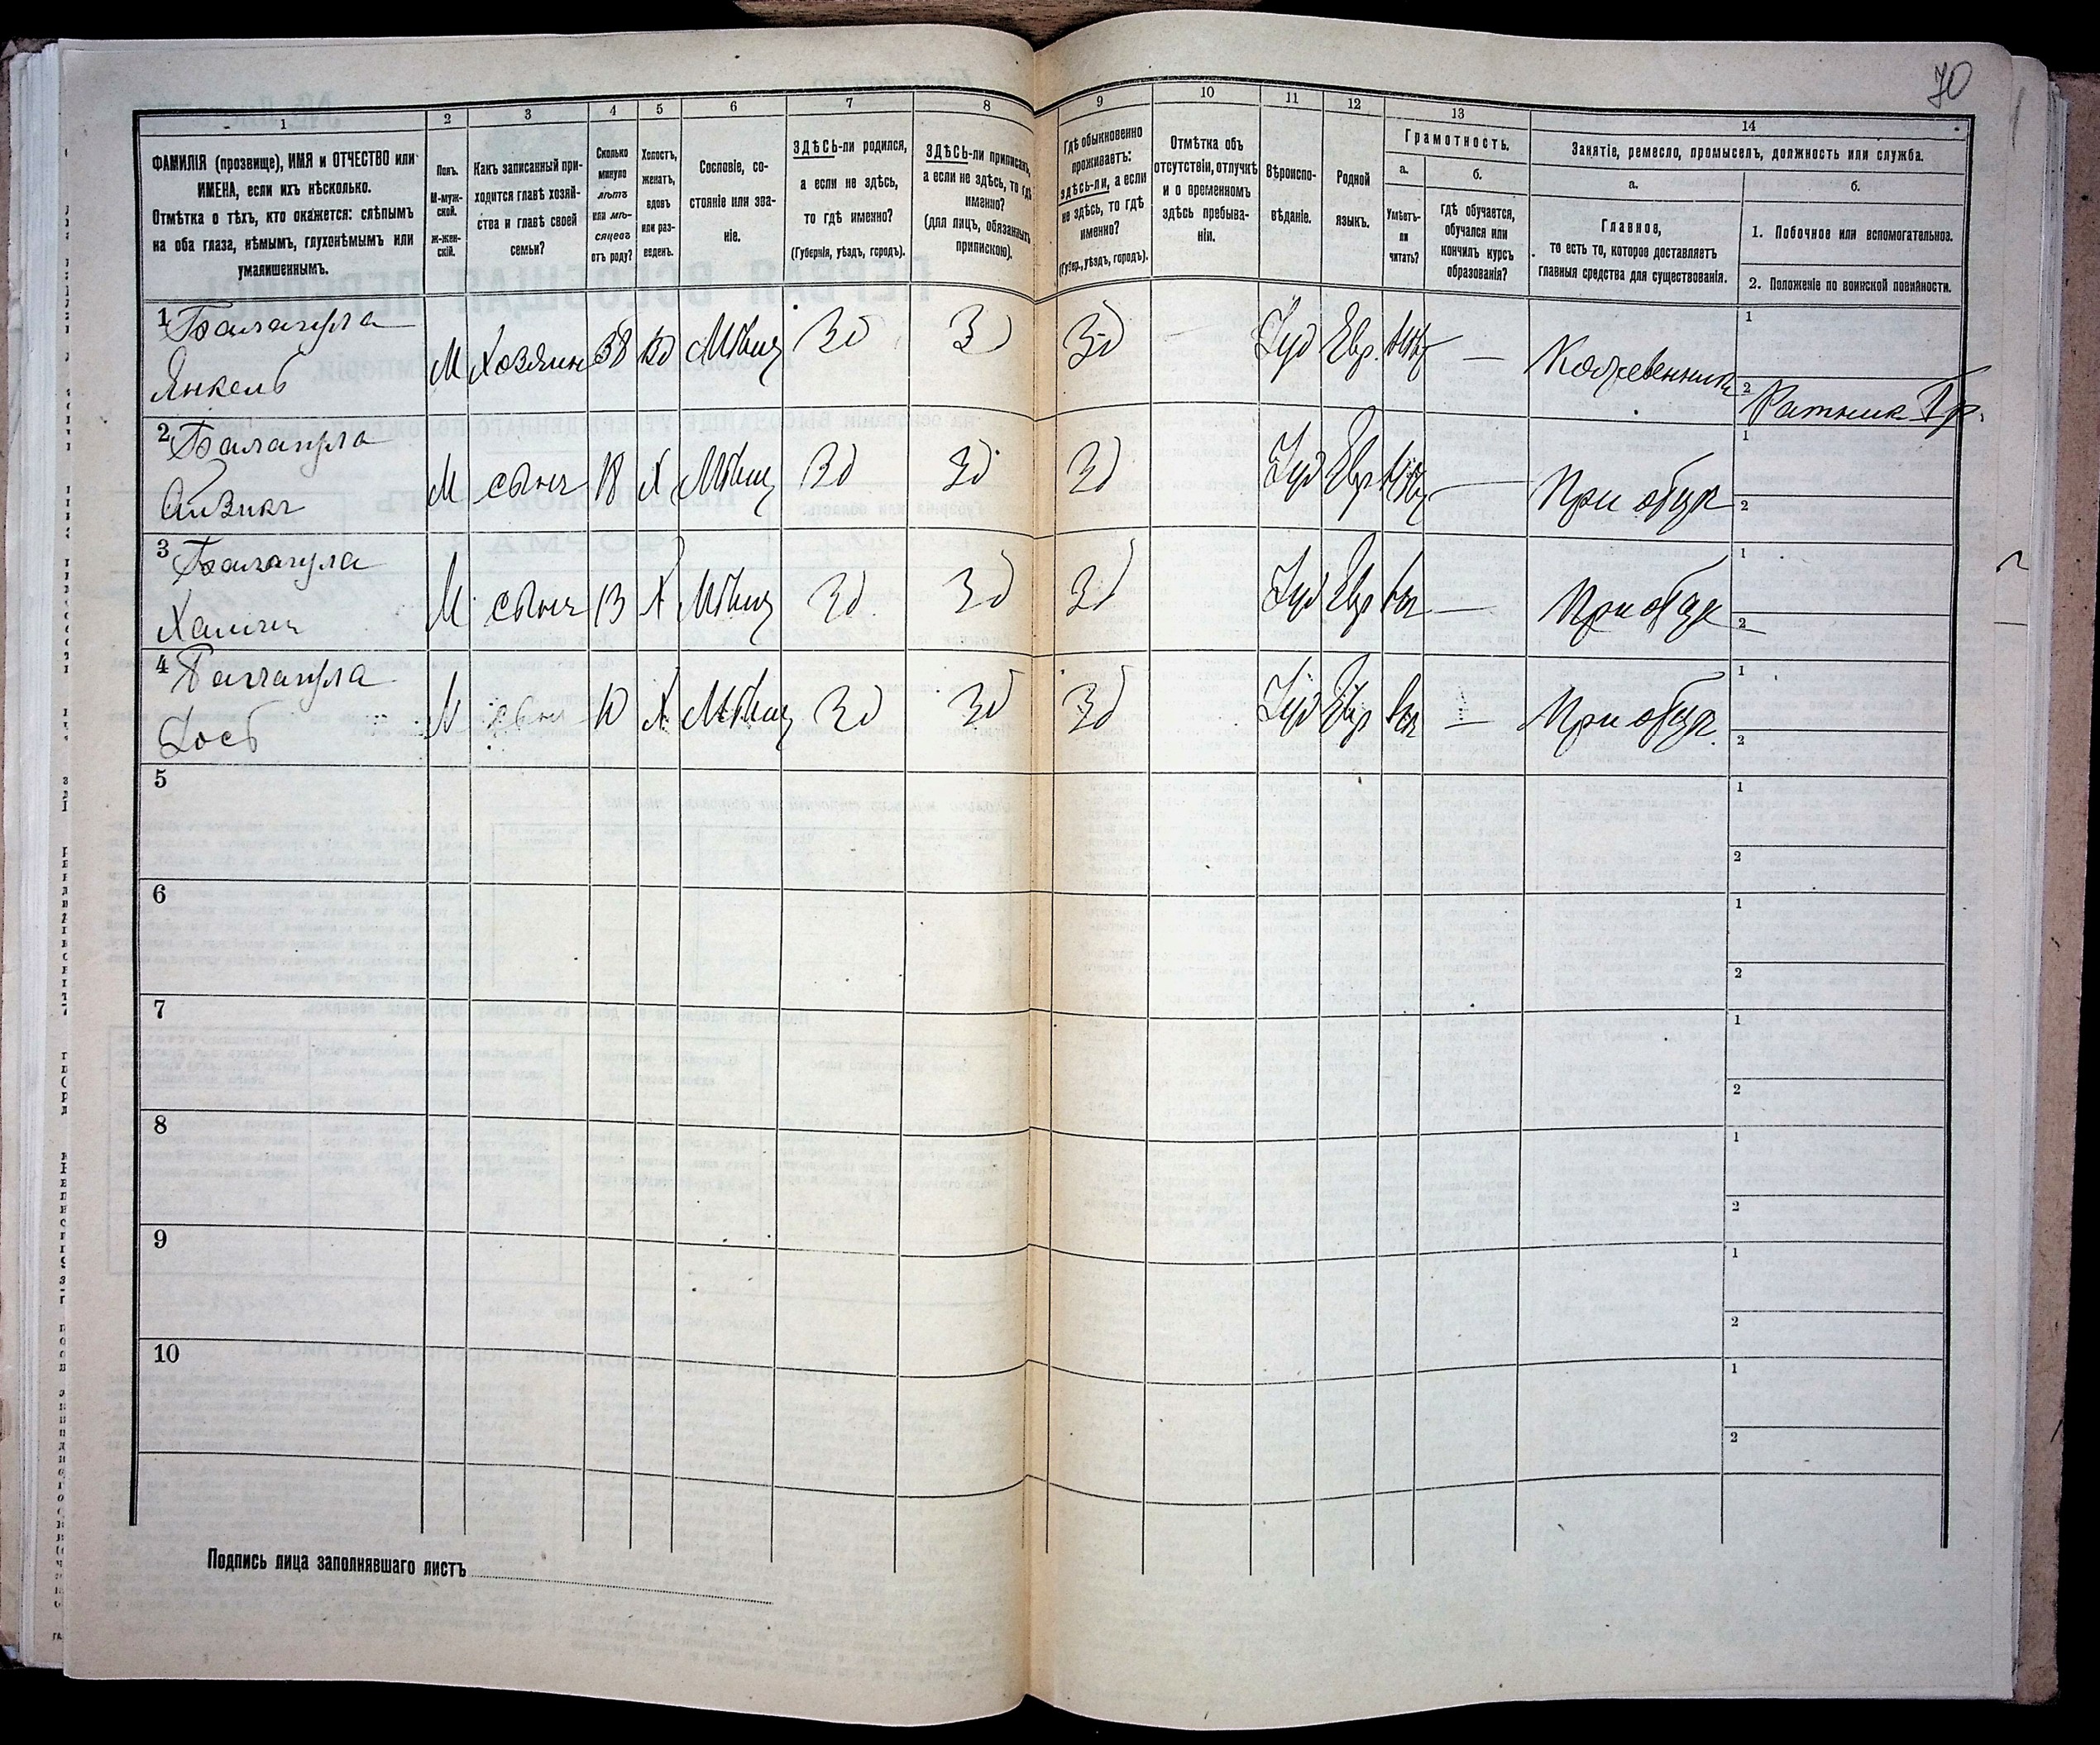 70
1
2
3
4
5
6
7
8
9
10
11
12
13
14
ФАМИЛІЯ (прозвище), ИМЯ и ОТЧЕСТВО или
ИМЕНА, если ихъ нѣсколько.
Отмѣтка о тѣхъ, кто окажется: слѣпымъ
на оба глаза, нѣмымъ, глухонѣмымъ или
умалишеннымъ.
Полъ.
М-муж-
ской.
Ж-жен-
скій.
Какъ записанный при-
ходится главѣ хозяй-
ства и главѣ своей
семьи?
Сколько
минуло
лѣтъ
или мѣ-
сяцевъ
отъ роду?
Холостъ,
женатъ,
вдовъ
или раз-
веденъ.
Сословіе, со-
стояніе или зва-
ніе.
ЗДѢСЬ-ли родился,
а если не здѣсь,
то гдѣ именно?
(Губернія, уѣздъ, городъ).
ЗДѢСЬ-ли приписанъ,
а если не здѣсь, то гдѣ
именно?
(для лицъ, обязанныхъ
припискою).
Гдѣ обыкновенно
проживаетъ:
здѣсь-ли, а если
не здѣсь, то гдѣ
именно?
(Губер., уѣздъ, городъ).
Отмѣтка объ
отсутствіи, отлучкѣ
и о временномъ
здѣсь пребыва-
ніи.
Вѣроиспо-
вѣданіе.
Родной
языкъ.
Грамотность.
а.
Умѣетъ-
ли
читать?
б.
гдѣ обучается,
обучался или
кончилъ курсъ
образованія?
Занятіе, ремесло, промыселъ, должность или служба.
а.
Главное,
то есть то, которое доставляетъ
главныя средства для существованія.
б.
1. Побочное или вспомогательное.
2. Положеніе по воинской повинности.
1 Балагула
Янкель
М Хозяинъ 38 Вд Мѣщ Зд Зд Зд Іуд Евр. — Кожевникъ
1
2 Ратник
2 Балагула
Айзикъ
М сынъ 18 Х Мѣщ Зд Зд Зд Іуд Евр — При отцѣ
1
2
3 Балагула
М сынъ 13 Х Мѣщ Зд Зд Зд Іуд Евр — При отцѣ
1
2
4 Балагула
М сынъ 10 Х Мѣщ Зд Зд Зд Іуд Евр — При отцѣ
1
2
5
1
2
6
1
2
7
1
2
8
1
2
9
1
2
10
1
2
Подпись лица заполнявшаго листъ